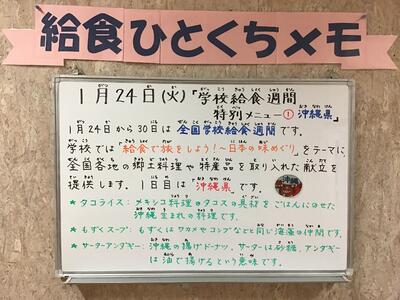 給食ひとくちメモ
1月24日(火)「学校給食週間
特別メニュー① 沖縄県」
1月24日から30日は 全国学校給食週間です。
学校では「給食で旅をしよう！～日本の味めぐり」をテーマに、
全国各地の郷土料理や特産品を取り入れた献立を
提供します。1日目は「沖縄県」です。
★タコライス・メキシコ料理のタコスの具材をごはんにのせた
沖縄生まれの料理です。
★もずくスープ・もずくはワカメやコンブなどと同じ海藻の仲間です。
★サーターアンダギー・沖縄の揚げドーナツ。サーターは砂糖、アンダギー
は油で揚げるという意味です。